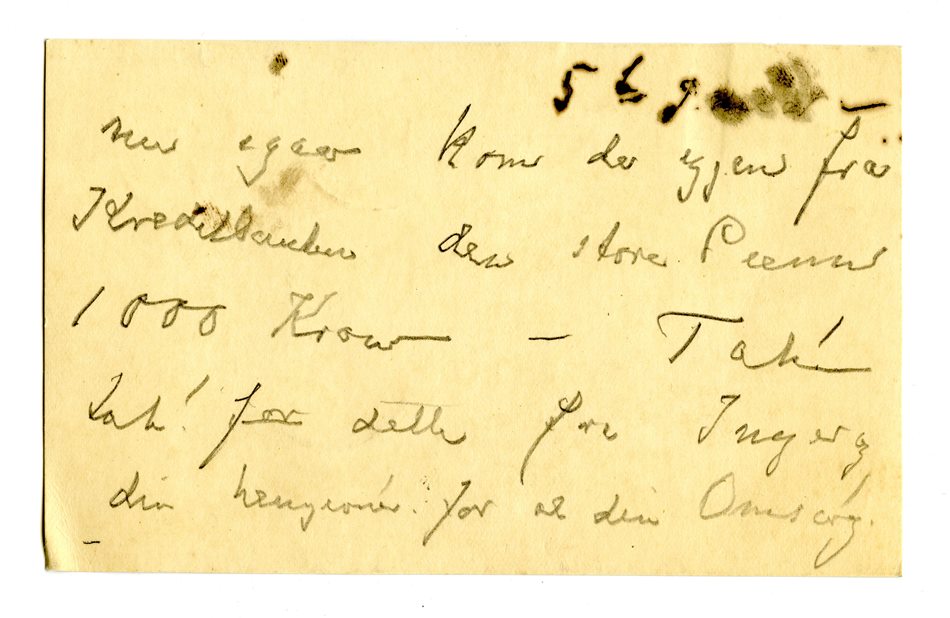 5
egaar Kom der igjen fra
Kreditbanken den store Penne
1000 Kroner – Tak!
tak! for dette fra Inger og
din hengivne. for al din Omsorg.